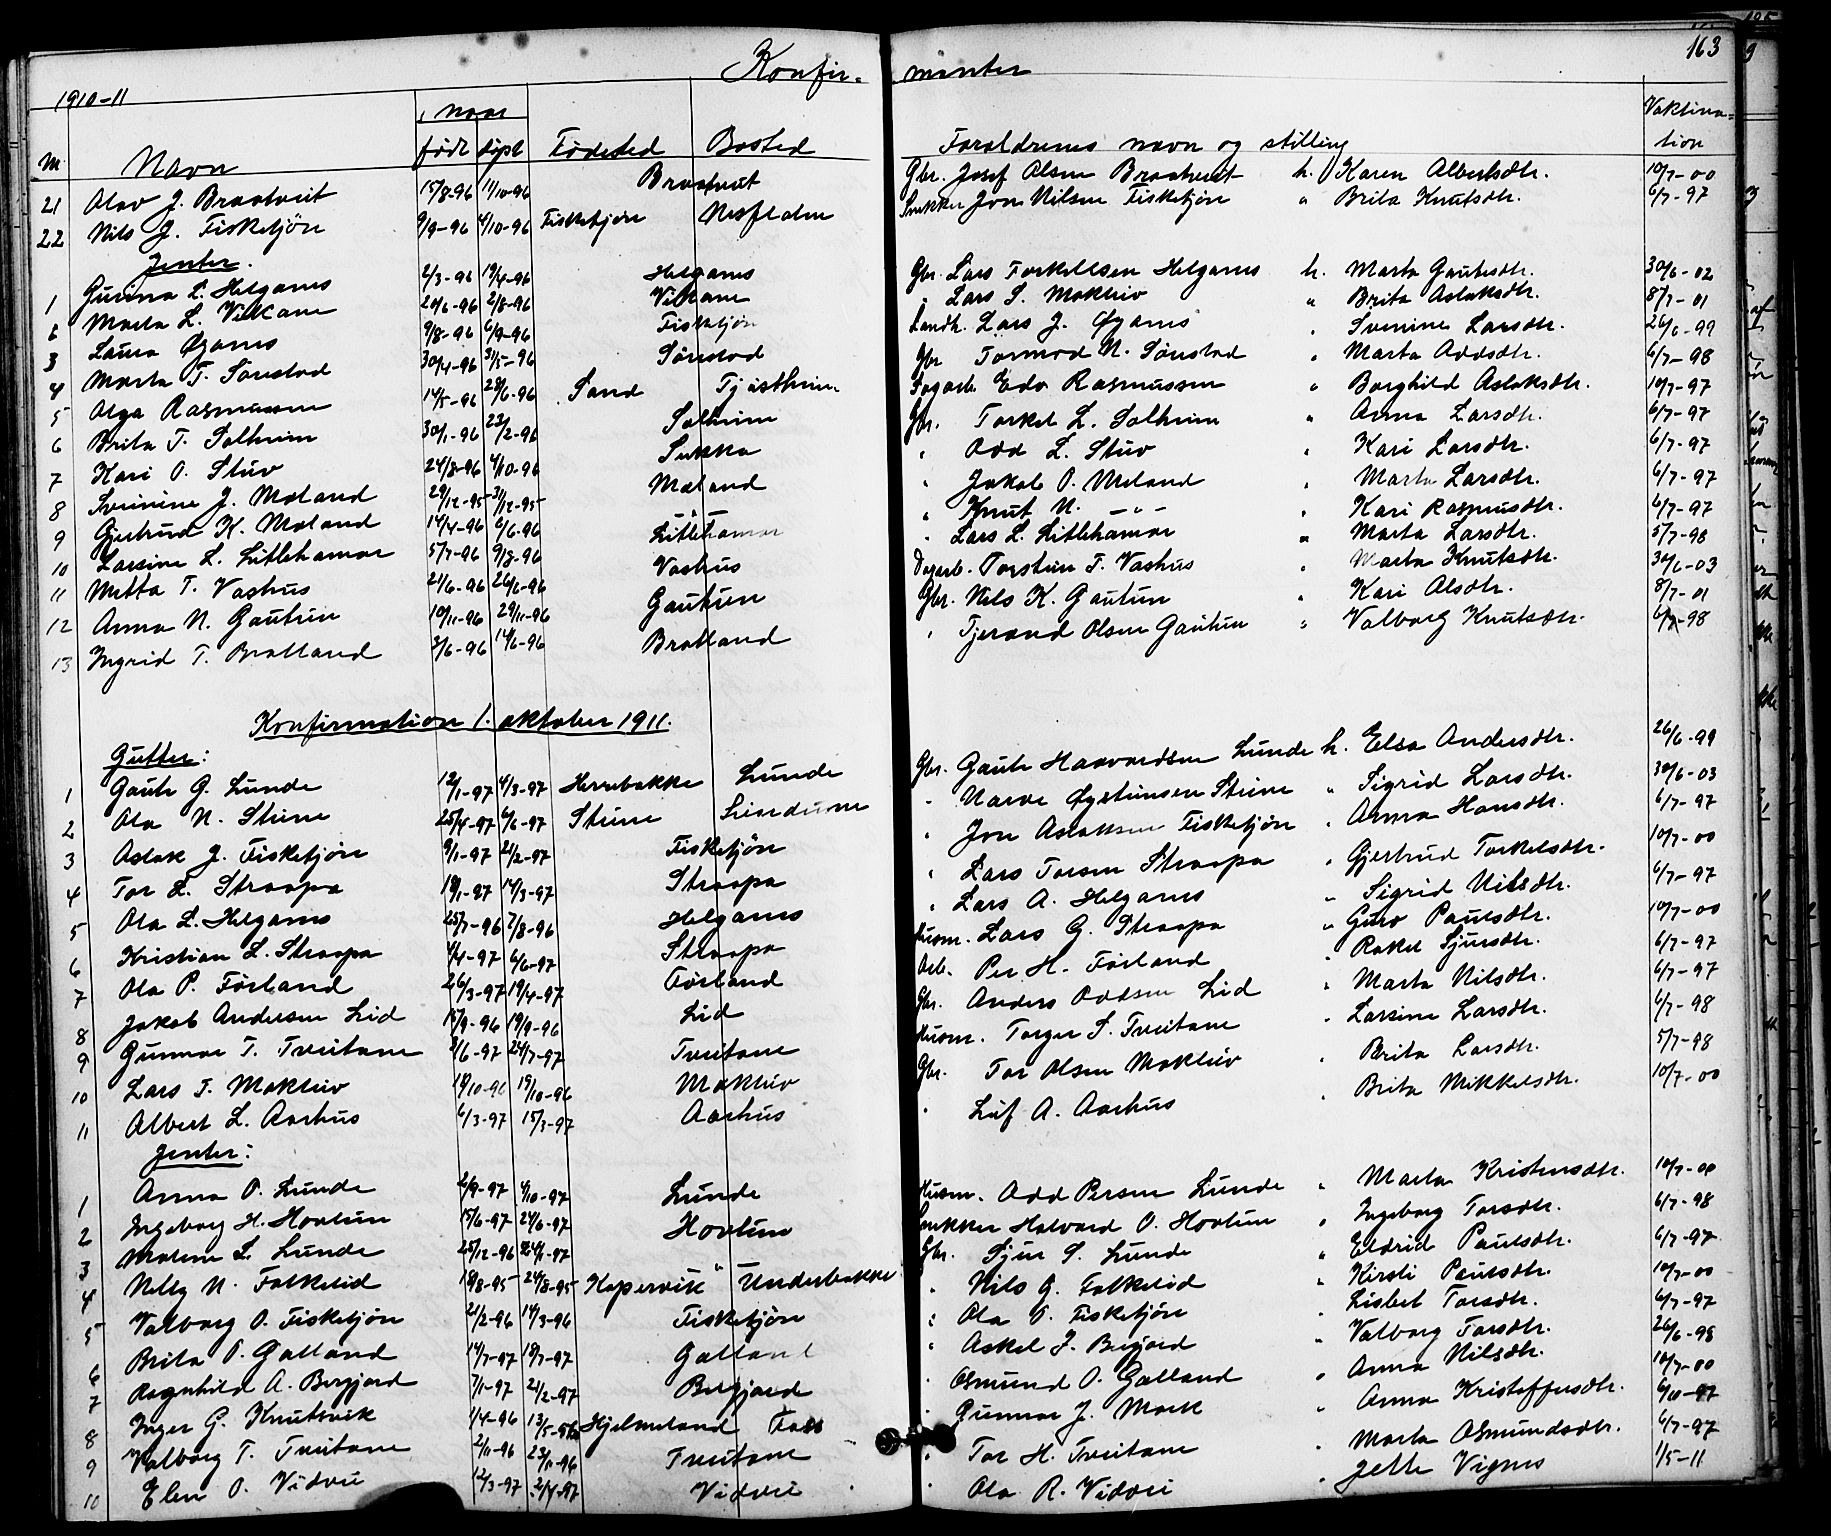 163
Konfir- manter
1910-11
No Navn , naar født døpt Fødested Bosted Foraldrenes navn og stilling Vaktina-tion
21 Olav J. Braatveit 15/8-96 11/10-96 Braatveit Gbr. Josef Olsen Braatveit h. Karen Albertsdtr. 10/7-00
22 Nils J. Fisketjøn 9/9-96 4/10-96 Fisketjøn Nesflaten Snekker Jon Nilsen Fisketjøn " Brita Knutsdtr. 6/7-97
Jenter.
1 Gurina L. Helganes 2/3-96 19/4-96 Helganes Gbr. Lars Torkellsen Helganes h. Marta Gautesdtr. 30/6-02
2 Marta L. Vikane 20/6-96 2/8-96 Vikane " Lars S. Mokleiv " Brita Aslaksdtr. 8/7-01
3 Laura Øganes 9/8-96 6/9-96 Fisketjøn Landh. Lars J. Øganes " Svenine Larsdtr. 26/6-99
4 Marta T. Sønstad 30/4-96 31/5-96 Sønstad Gbr Tormod N. Sønstad " Marta Oddsdtr. 6/7-98
5 Olga Rasmussen 14/5-96 28/6-96 Sand Tjøstheim Fagarb. Edv Rasmussen " Borghild Aslaksdtr. 10/7-97
6 Brita T. Solheim 30/1-96 23/2-96 Solheim Gbr. Torkel L. Solheim " Anna Larsdtr. 6/7-97
7 Kari O. Stuv 24/8-96 4/10-96 Sukka " Odd L. Stuv " Kari Larsdtr. 6/7-97
8 Sveinine J. Mæland 29/12-95 31/12-95 Mæland " Jakob O. Meland " Marta Larsdtr. 6/7-97
9 Gjertrud K. Mæland 14/4-96 6/6-96 - " - " Knut N. - " - " Kari Rasmusdtr. 6/7-97
10 Larsine L. Litlehamar 5/7-96 9/8-96 Litlehamar " Lars L. Litlehamar " Marta Larsdtr. 5/7-98
11 Metta T. Vashus 21/6-96 26/6-96 Vashus Dagarb. Torstein T. Vashus " Marta Knutsdtr. 30/6-03
12 Anna N. Gautun 10/11-96 29/11-96 Gautun Gbr. Nils K. Gautun " Kari Olsdtr. 8/7-01
13 Ingrid T. Bratland 3/6-96 14/6-96 Bratland " Tjerand Olsen Gautun " Valborg Knutsdtr. 6/7-98
Konfirmation 1. oktober 1911.
Gutter:
1 Gaute G. Lunde 12/1-97 4/3-97 Herrebakke Lunde Gbr. Gaute Haavardsen Lunde h. Elsa Andersdtr. 26/6-99
2 Ola N. Steine 25/4-97 6/6-97 Steine " Narve Øysteinsen Steine " Sigrid Larsdtr. 30/6-03
3 Aslak J. Fisketjøn 9/1-97 21/2-97 Fisketjøn " Jon Aslaksen Fisketjøn " Anna Hansdtr. 6/7-97
4 Tor L. Straapa 19/1-97 14/3-97 Straapa " Lars Torsen Straapa " Gjertrud Torkelsdtr. 10/7-00
5 Ola L. Helganes 25/7-96 7/8-96 Helganes " Lars A. Helganes " Sigrid Nilsdtr. 6/7-97
6 Kristian L. Straapa 4/4-97 6/6-97 Straapa Husm. Lars G. Straapa " Guro Paulsdtr. 10/7-00
7 Ola P. Førland 26/3-97 19/4-97 Førland Arb. Per H. Førland " Rakel Sjursdtr. 6/7-97
8 Jakob Andersen Lid 15/9-96 19/9-96 Lid Gbr. Anders Oddsen Lid " Marta Nilsdtr. 6/7-97
9 Gunnar T. Tveitane 2/6-97 24/7-97 Tveitane Husm. Torger S. Tveitane " Larsine Larsdtr. 6/7-98
10 Lars T. Mokleiv 18/10-96 19/10-96 Mokleiv Gbr. Tor Olsen Mokleiv " Brita Larsdtr. 5/7-98
11 Albert L. Aarhus 6/3-97 15/3-97 Aarhus " Leif A. Aarhus " Brita Mikkelsdtr. 10/7-00
Jenter:
1 Anna O. Lunde 2/9-97 4/10-97 Lunde Husm. Odd Persen Lunde " Marta Kristensdtr. 10/7-00
2 Ingeborg H. Hovtun 15/6-97 24/6-97 Hovtun Snekker Halvard O. Hovtun " Ingeborg Torsdtr. 6/7-98
3 Malene S. Lunde 25/12-96 24/1-97 " Gbr. Sjur S. Lunde " Eldrid Paulsdtr. 6/7-97
4 Nelly N. Falkeid 18/8-95 24/8-95 Kopervik Underbakke " Nils G. Falkeid " Kirsti Paulsdtr. 10/7-00
5 Valborg O. Fisketjøn 21/2-96 14/3-96 Fisketjøn " Ola O. Fisketjøn " Lisbet Torsdtr. 6/7-97
6 Brita O. Galland 14/7-97 19/7-97 Galland " Askel J. Bergjord " Valborg Torsdtr. 26/6-98
7 Ragnhild A. Bergjord 7/1-97 21/2-97 Bergjord " Osmund O. Galland " Anna Nilsdtr. 10/7-00
8 Inger G. Knutsvik 1/4-96 13/5-96 Hjelmeland Foss " Gunnar J. Mork " Anna Kristoffersdtr. 6/10-97
9 Valborg T. Tveitane 2/11-96 23/11-96 Tveitane " Tor H. Tveitane " Marta Osmundsdtr. 6/7-97
10 Elen O. Vidvei 12/3-97 2/4-97 Vidvei " Ola R. Vidvei " Jette Vignes 1/5-11